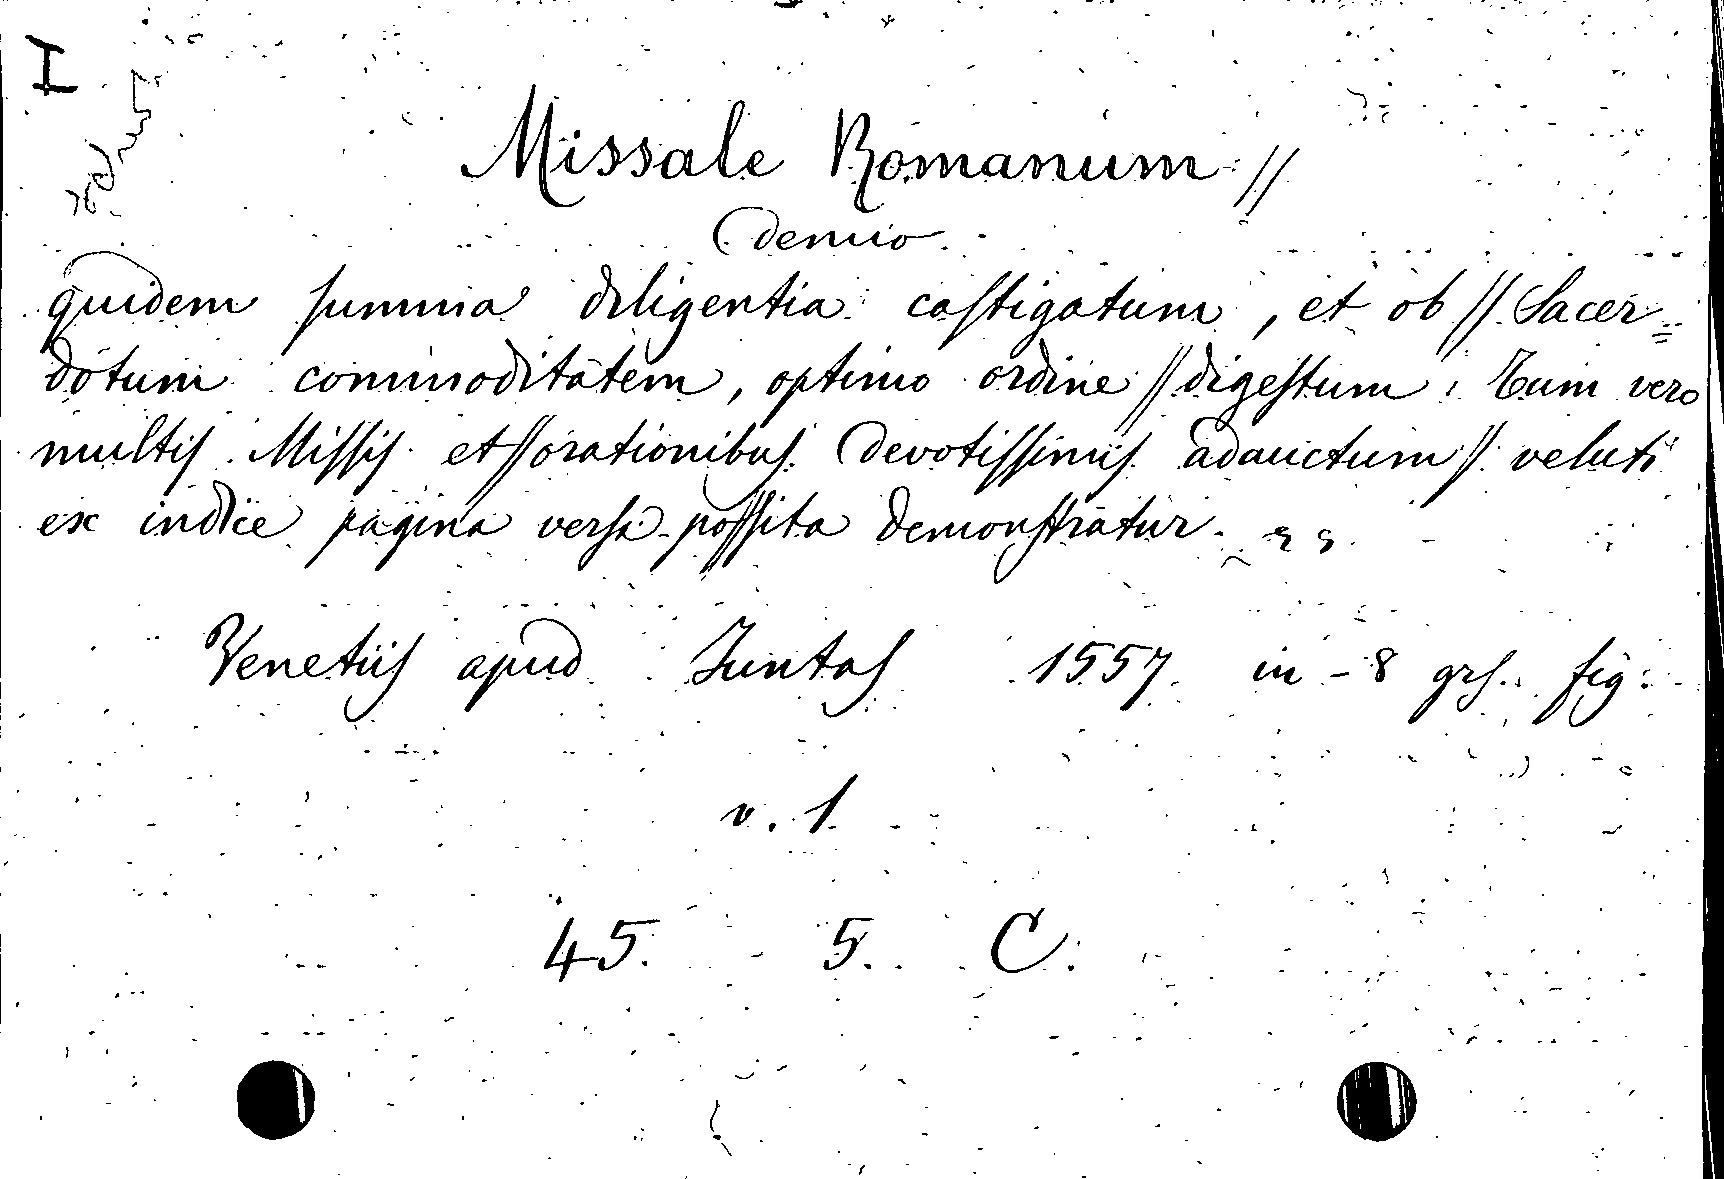 I
Missale Romanum //
denuo
quidem summa diligentia castigatum, et ob // Sacer=
dotum commoditatem, optimo ordine // digestum: Tum vero
multis Missis et // orationibus devotissimis adauctum // veluti
ex indice pagina versa possita demonstratur.
Venetiis apud Juntas 1557 in-8 grs. fig.
v. 1
45. 5. C.